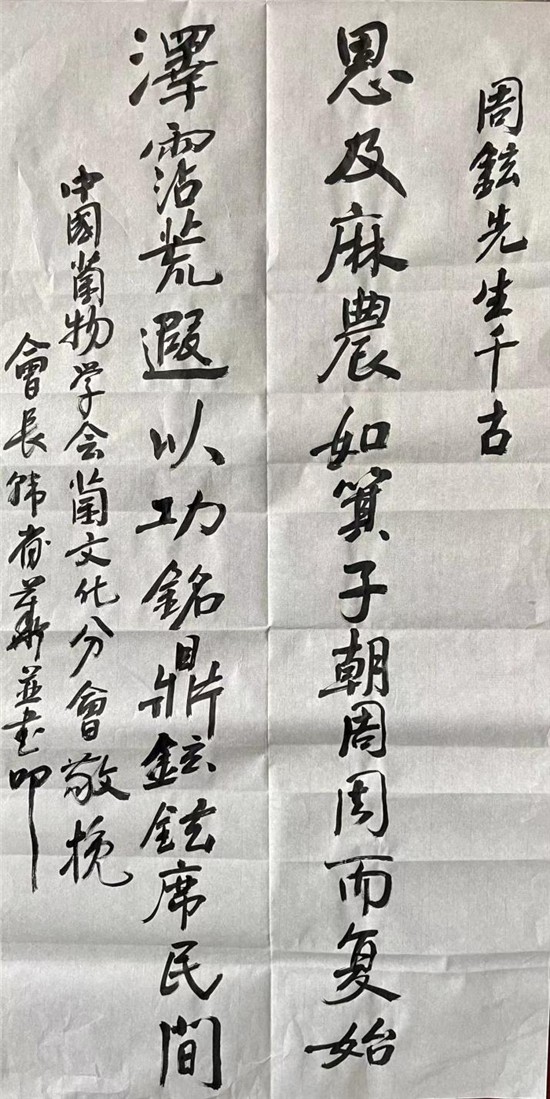 周鉉先生千古
恩及麻農如箕子朝周周而复始
澤霑荒遐以功銘鼎鉉鉉席民間
中國菌物学会菌文化分會敬挽
會長韩省華並书叩